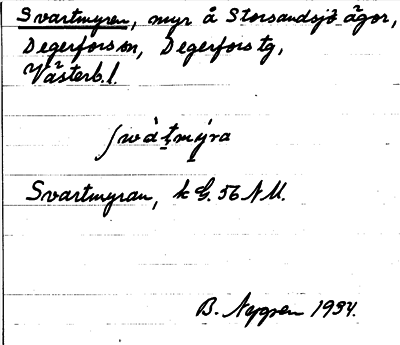 Svartmyren, myr å Storsandsjö ägor,
Degerfors sn, Degerfors tg,
Västerb. l.
Svartmyran, k G. 56 NU.
B. Nygren 1934.